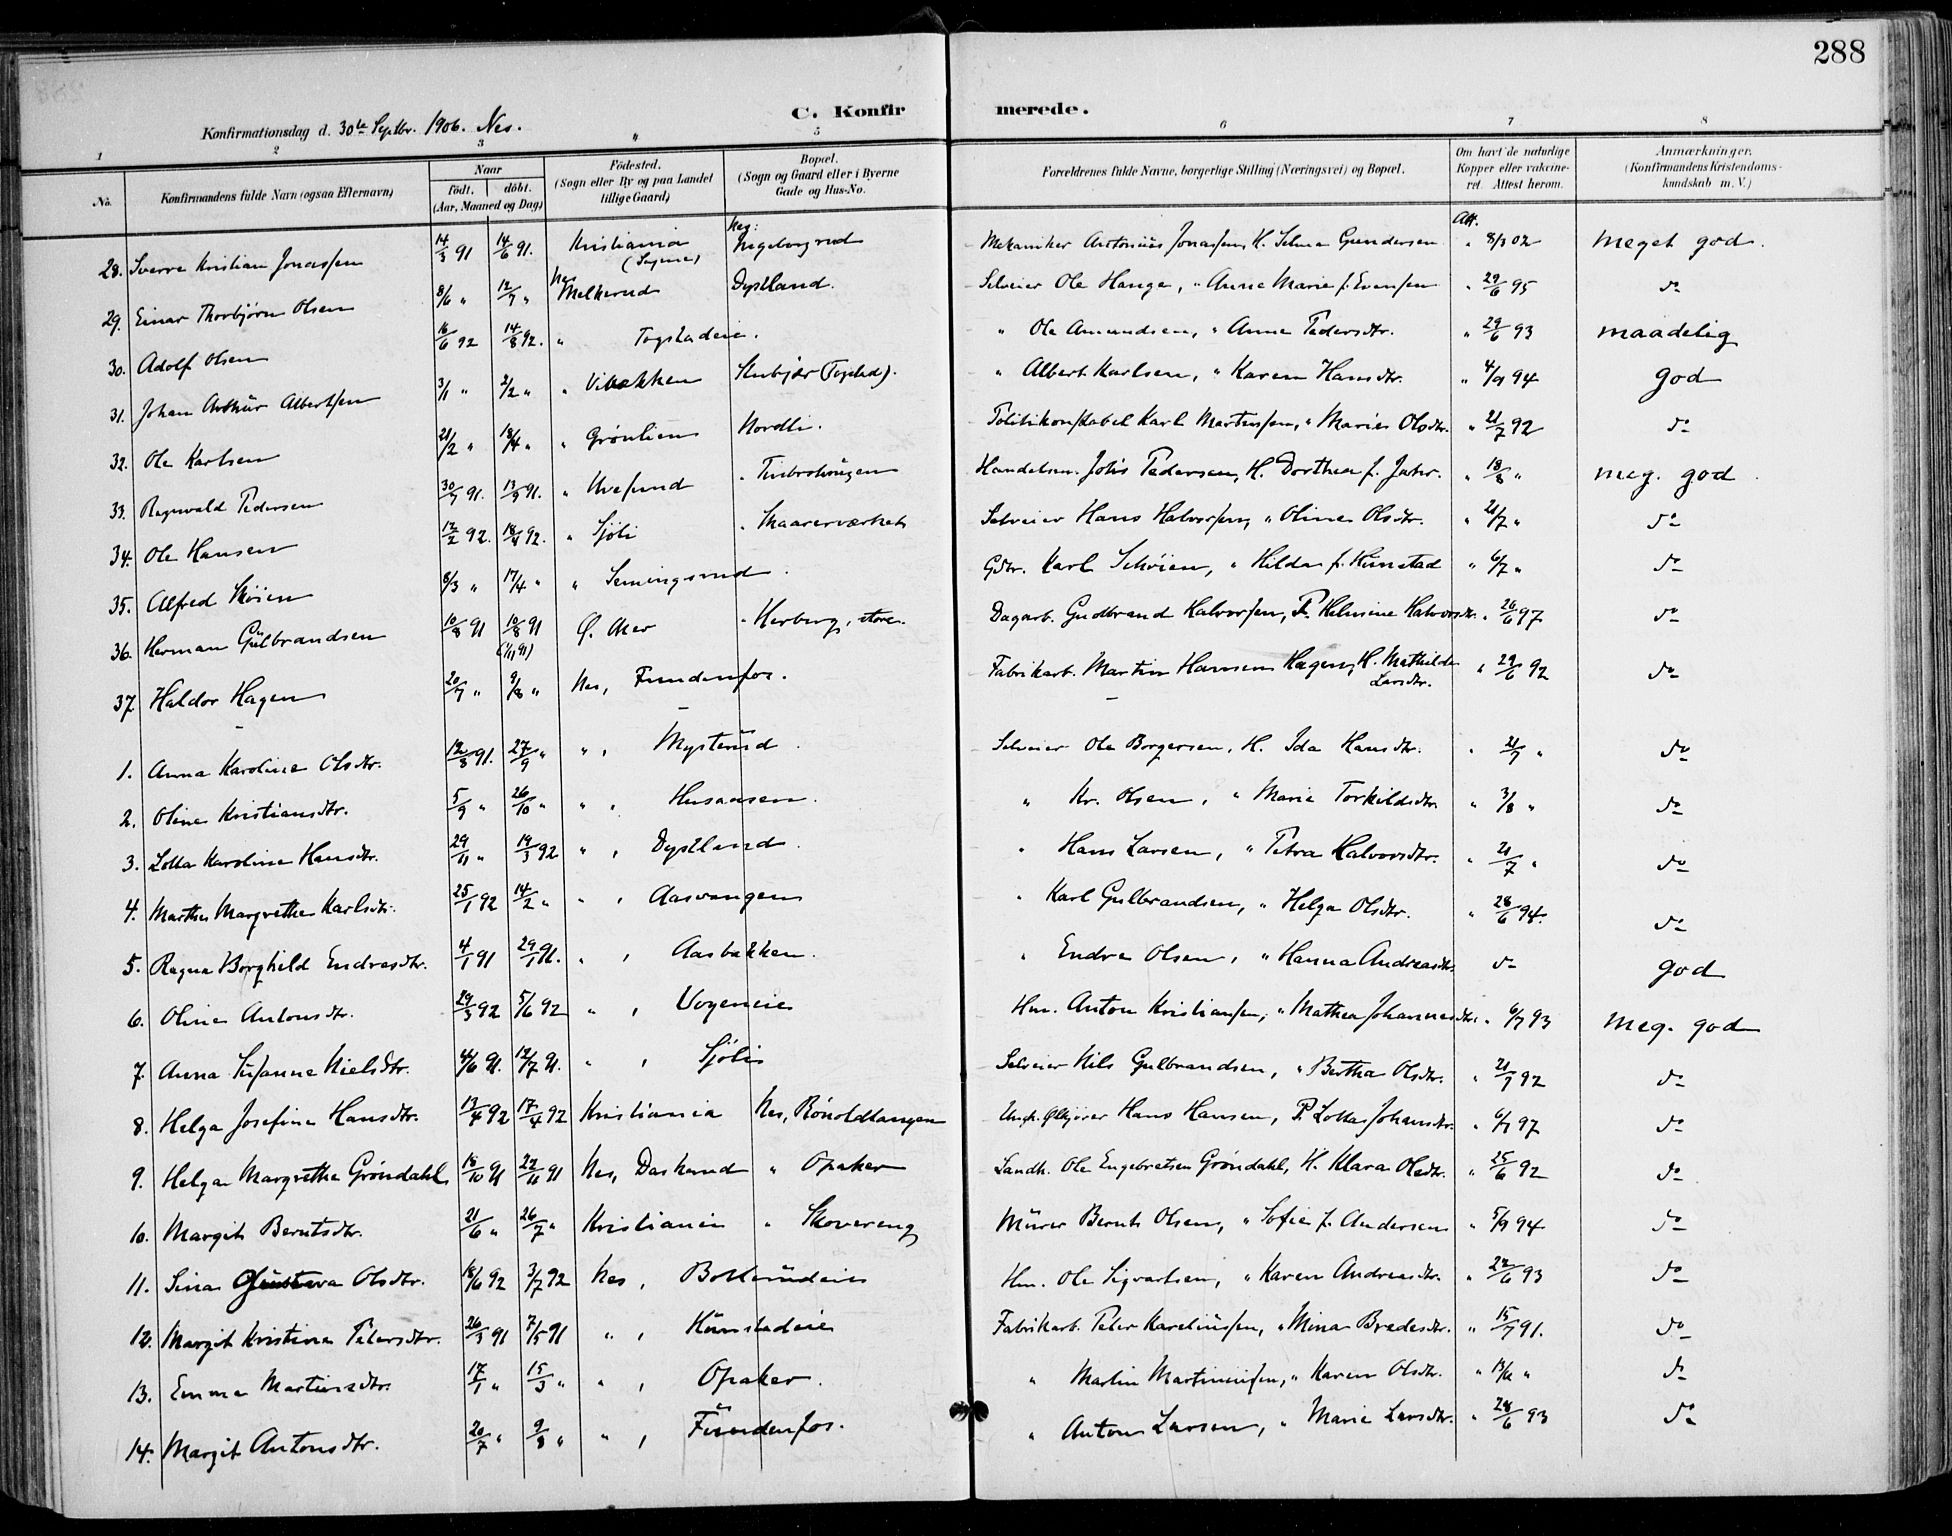 288
C. Konfir merede.
Konfirmationsdag d. 30te Septbr. 1906. Nes.
1 2 3 " 5 6 7 8
No. Konfirmandens fulde Navn (ogsaa Efternavn) Naar født. døbt. (Aar, Maaned og Dag) Födested. (Sogn eller By og paa Landet tillige Gaard) Bopæl. (Sogn og Gaard eller i Byerne Gade og Hus-No. Forældrenes fulde Navne, borgerlige Stilling (Næringsvei) og Bopæl. Om havt de naturlige Kopper eller vakcineret. Attest herom. Anmærkninger. (Konfirmandens Kristendomskundskab m. V.)
28. Sverre Kristian Jonassen 14/3 91 14/6 91. Kristiania Nes: Ingeborgrud Mekaniker Antonius Jonassen, H. Selma Gundersen Att. " 8/3 02 meget god.
29. Einar Thorbjørn Olsen 8/6 " 12/7 " Nes Melkerud Dystland. Selveier Ole Hauge, " Anne Marie f. Evensen " 29/6 95 do
30. Adolf Olsen 16/6 92 14/8 92. " Togstadeie. " Ole Amundsen, " Anne Pedersdtr. " 29/6 93 maadelig
31. Johan Arthur Albertsen 3/1 " 2/2 " " Vibakken (Togstad). " Albert Karlsen, " Karen Hansdtr. " 4/9 94 god
32. Ole Karlsen 21/2 " 18/4 " " Grønlien Nordli. Politikonstabel Karl Martinsen, " Marie Olsdtr. " 21/7 92 do
33. Ragnvald Pedersen 30/7 91. 13/9 91. " Uvesund " Pedersen, H. Dorthea f. " 18/8 " meg. god
34. Ole Hansen 12/2 92. 18/4 92. " Sjøli " Skaarerværket Selveier Hans Halvorsen, " Oline Olsdtr. " 21/7 " do
35. Alfred Skøien 8/3 " 17/4 " " Semingsrud. Gdr. Karl Schøien, " Hilda f. Hunstad " 6/7 " do
36. Herman Gulbrandsen 10/8 91 10/8 91 (1/11 91) Ø. Aker " Herberg, store. Dagarb. Gudbrand Halvorsen, P. Helmine Halvorsdtr. " 26/6 97 do
37. Haldor Hagen 20/7 " 9/8 " Nes, Funnenfos. Fabrikarb. Martin Hansen Hagen, H. Mathilde Larsdtr. " 29/6 92 do
1. Anna Karoline Olsdtr. 12/8 91. 27/9 " " , Mysterud. Selveier Ole Borgersen, H. Ida Hansdtr. " 21/7 " do
2. Oline Kristiansdtr. 5/9 " 26/10 " " , Husaasen. " Kr. Olsen, " Marie Torkildsdtr. " 3/8 " do
3. Lotta Karoline Hansdtr. 29/11 " 19/3 92 " , Dystland. " Hans Larsen, " Petra Halvorsdtr. " 21/7 " do
4. Marthe Margrethe Karlsdtr. 25/1 92 14/2 " " , Aasvangen " Karl Gulbrandsen, " Helga Olsdtr. " 28/6 94. do
5. Ragna Borghild Endresdtr. 4/1 91 29/1 91. " , Aasbakken. " Endre Olsen, " Hanna Andreasdtr. do god
6. Oline Antonsdtr. 29/3 92 5/6 92 " , Vogeneie Hm. Anton Kristiansen, " Mathea Johannesdtr. " 6/7 93 meg. god
7. Anna Susanne Nielsdtr. 4/6 91. 12/7 91. " , Sjøli Selveier Nils Gulbrandsen, " Bertha Olsdtr. " 21/7 92 do
8. Helga Josefine Hansdtr. 13/4 92 17/4 92 Kristiania Nes, Rønoldtangen Hans Hansen, P. Lotta Johansdtr. " 6/7 97 do
9. Helga Margrethe Grøndahl 18/10 91 22/11 91 Nes, Daskerud " Opaker Landh. Ole Engebretsen Grøndahl, H. Klara Olsdtr. " 25/6 92 do
10. Margit Berntsdtr. 21/6 " 26/7 " Kristiania " Skovereng Murer Bernt Olsen, " Sofie f. Andersen " 5/9 94 do
11. Sina Gustava Olsdtr. 18/6 92 3/7 92 Nes, Bollerudeie Hm. Ole Sigvartsen, " Karen Andreasdtr. " 22/6 93 do
12. Margit Kristine Petersdtr. 26/3 91 7/5 91 " , Hunstadeie Fabrikarb. Peter Kareliussen, " Mina Bredesdtr. " 15/7 91. do
13. Emma Martinsdtr. 17/1 " 15/3 " " , Opaker. " Martin Martiniussen, " Karen Olsdtr. " do
14. Margit Antonsdtr. 20/7 " 9/8 " " , Funnenfos. " Anton Larsen, " Marie Larsdtr. " 28/6 93 do